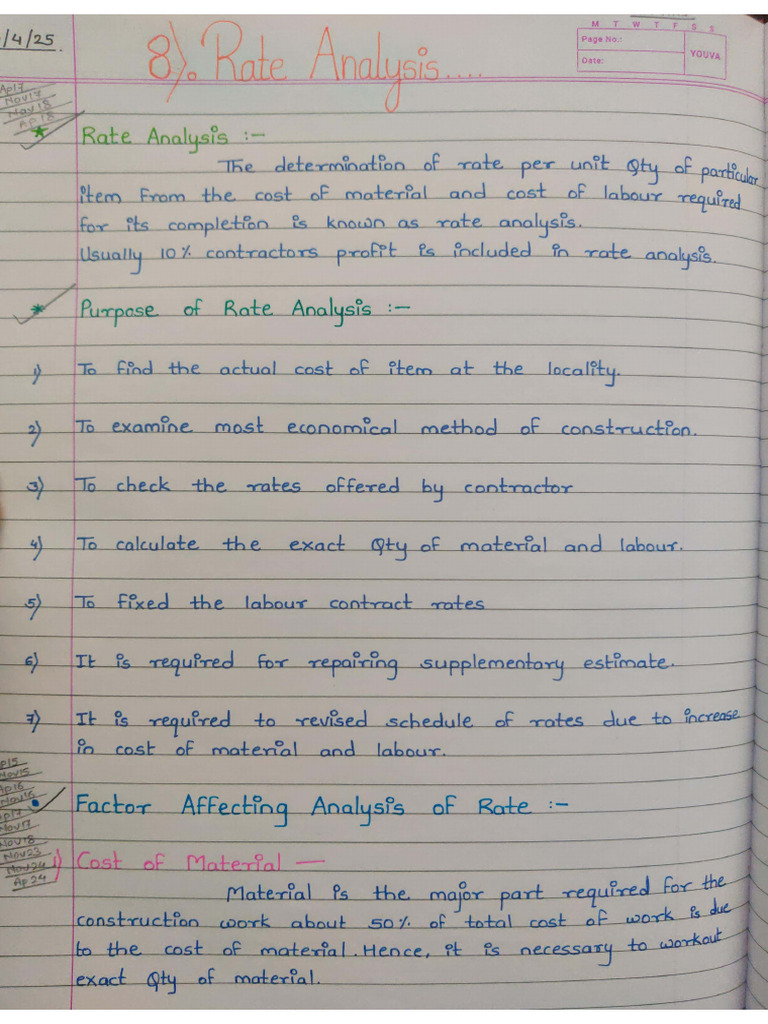 /4/25.
8). Rate Analysis....
M T W T F S S
Page No.:
Date:
YOUVA
Ap17
Nov17
Nov18
Ap18
* Rate Analysis :-
The determination of rate per unit Qty of particular
item from the cost of material and cost of labour required
for its completion is known as rate analysis.
Usually 10% contractors profit is included in rate analysis.
* Purpose of Rate Analysis :-
1) To find the actual cost of item at the locality.
2) To examine most economical method of construction.
3) To check the rates offered by contractor
4) To calculate the exact Qty of material and labour.
5) To fixed the labour contract rates
6) It is required for repairing supplementary estimate.
7) It is required to revised schedule of rates due to increase
in cost of material and labour.
p15
Nov15
Ap16
Nov16
Ap17
Nov17
Nov18
Nov23
Nov24
Ap24
• Factor Affecting Analysis of Rate :-
1) Cost of Material —
Material is the major part required for the
construction work about 50% of total cost of work is due
to the cost of material. Hence, it is necessary to workout
exact Qty of material.